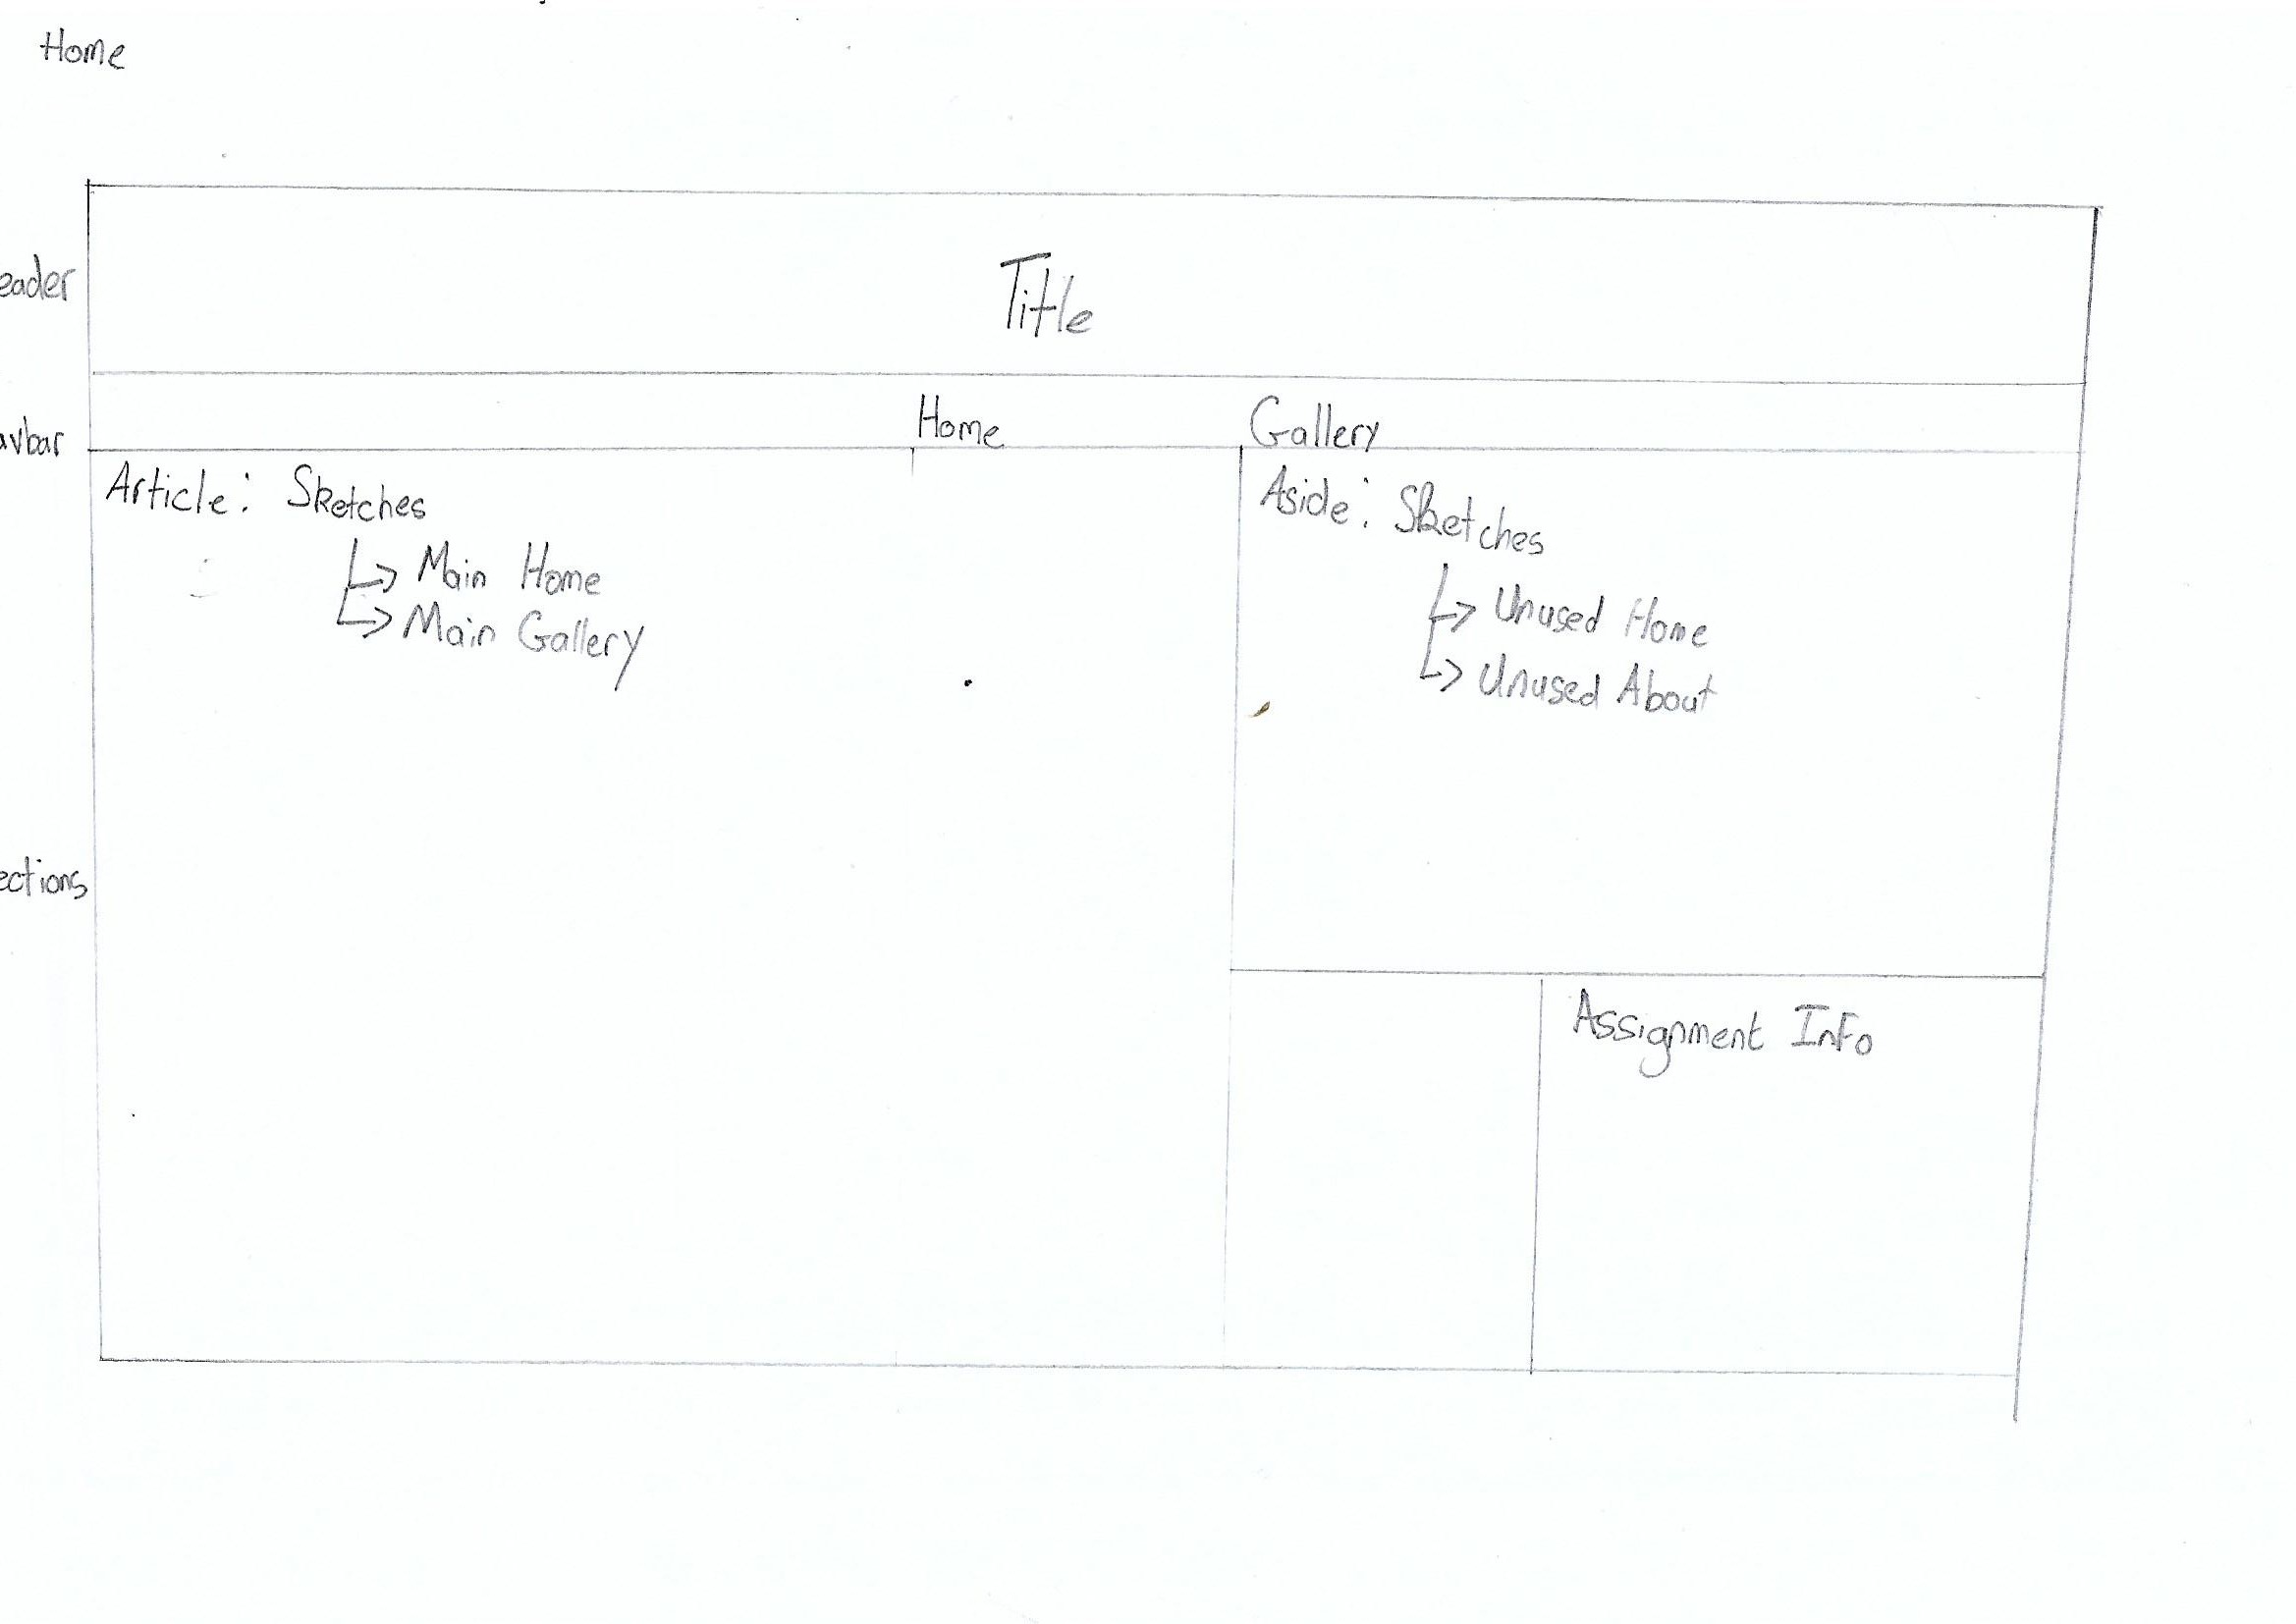 Home
eader
Title
avbar
Home
Gallery
Article: Sketches
Main Home
Main Gallery
Aside: Sketches
Unused Home
Unused About
ections
Assignment Info